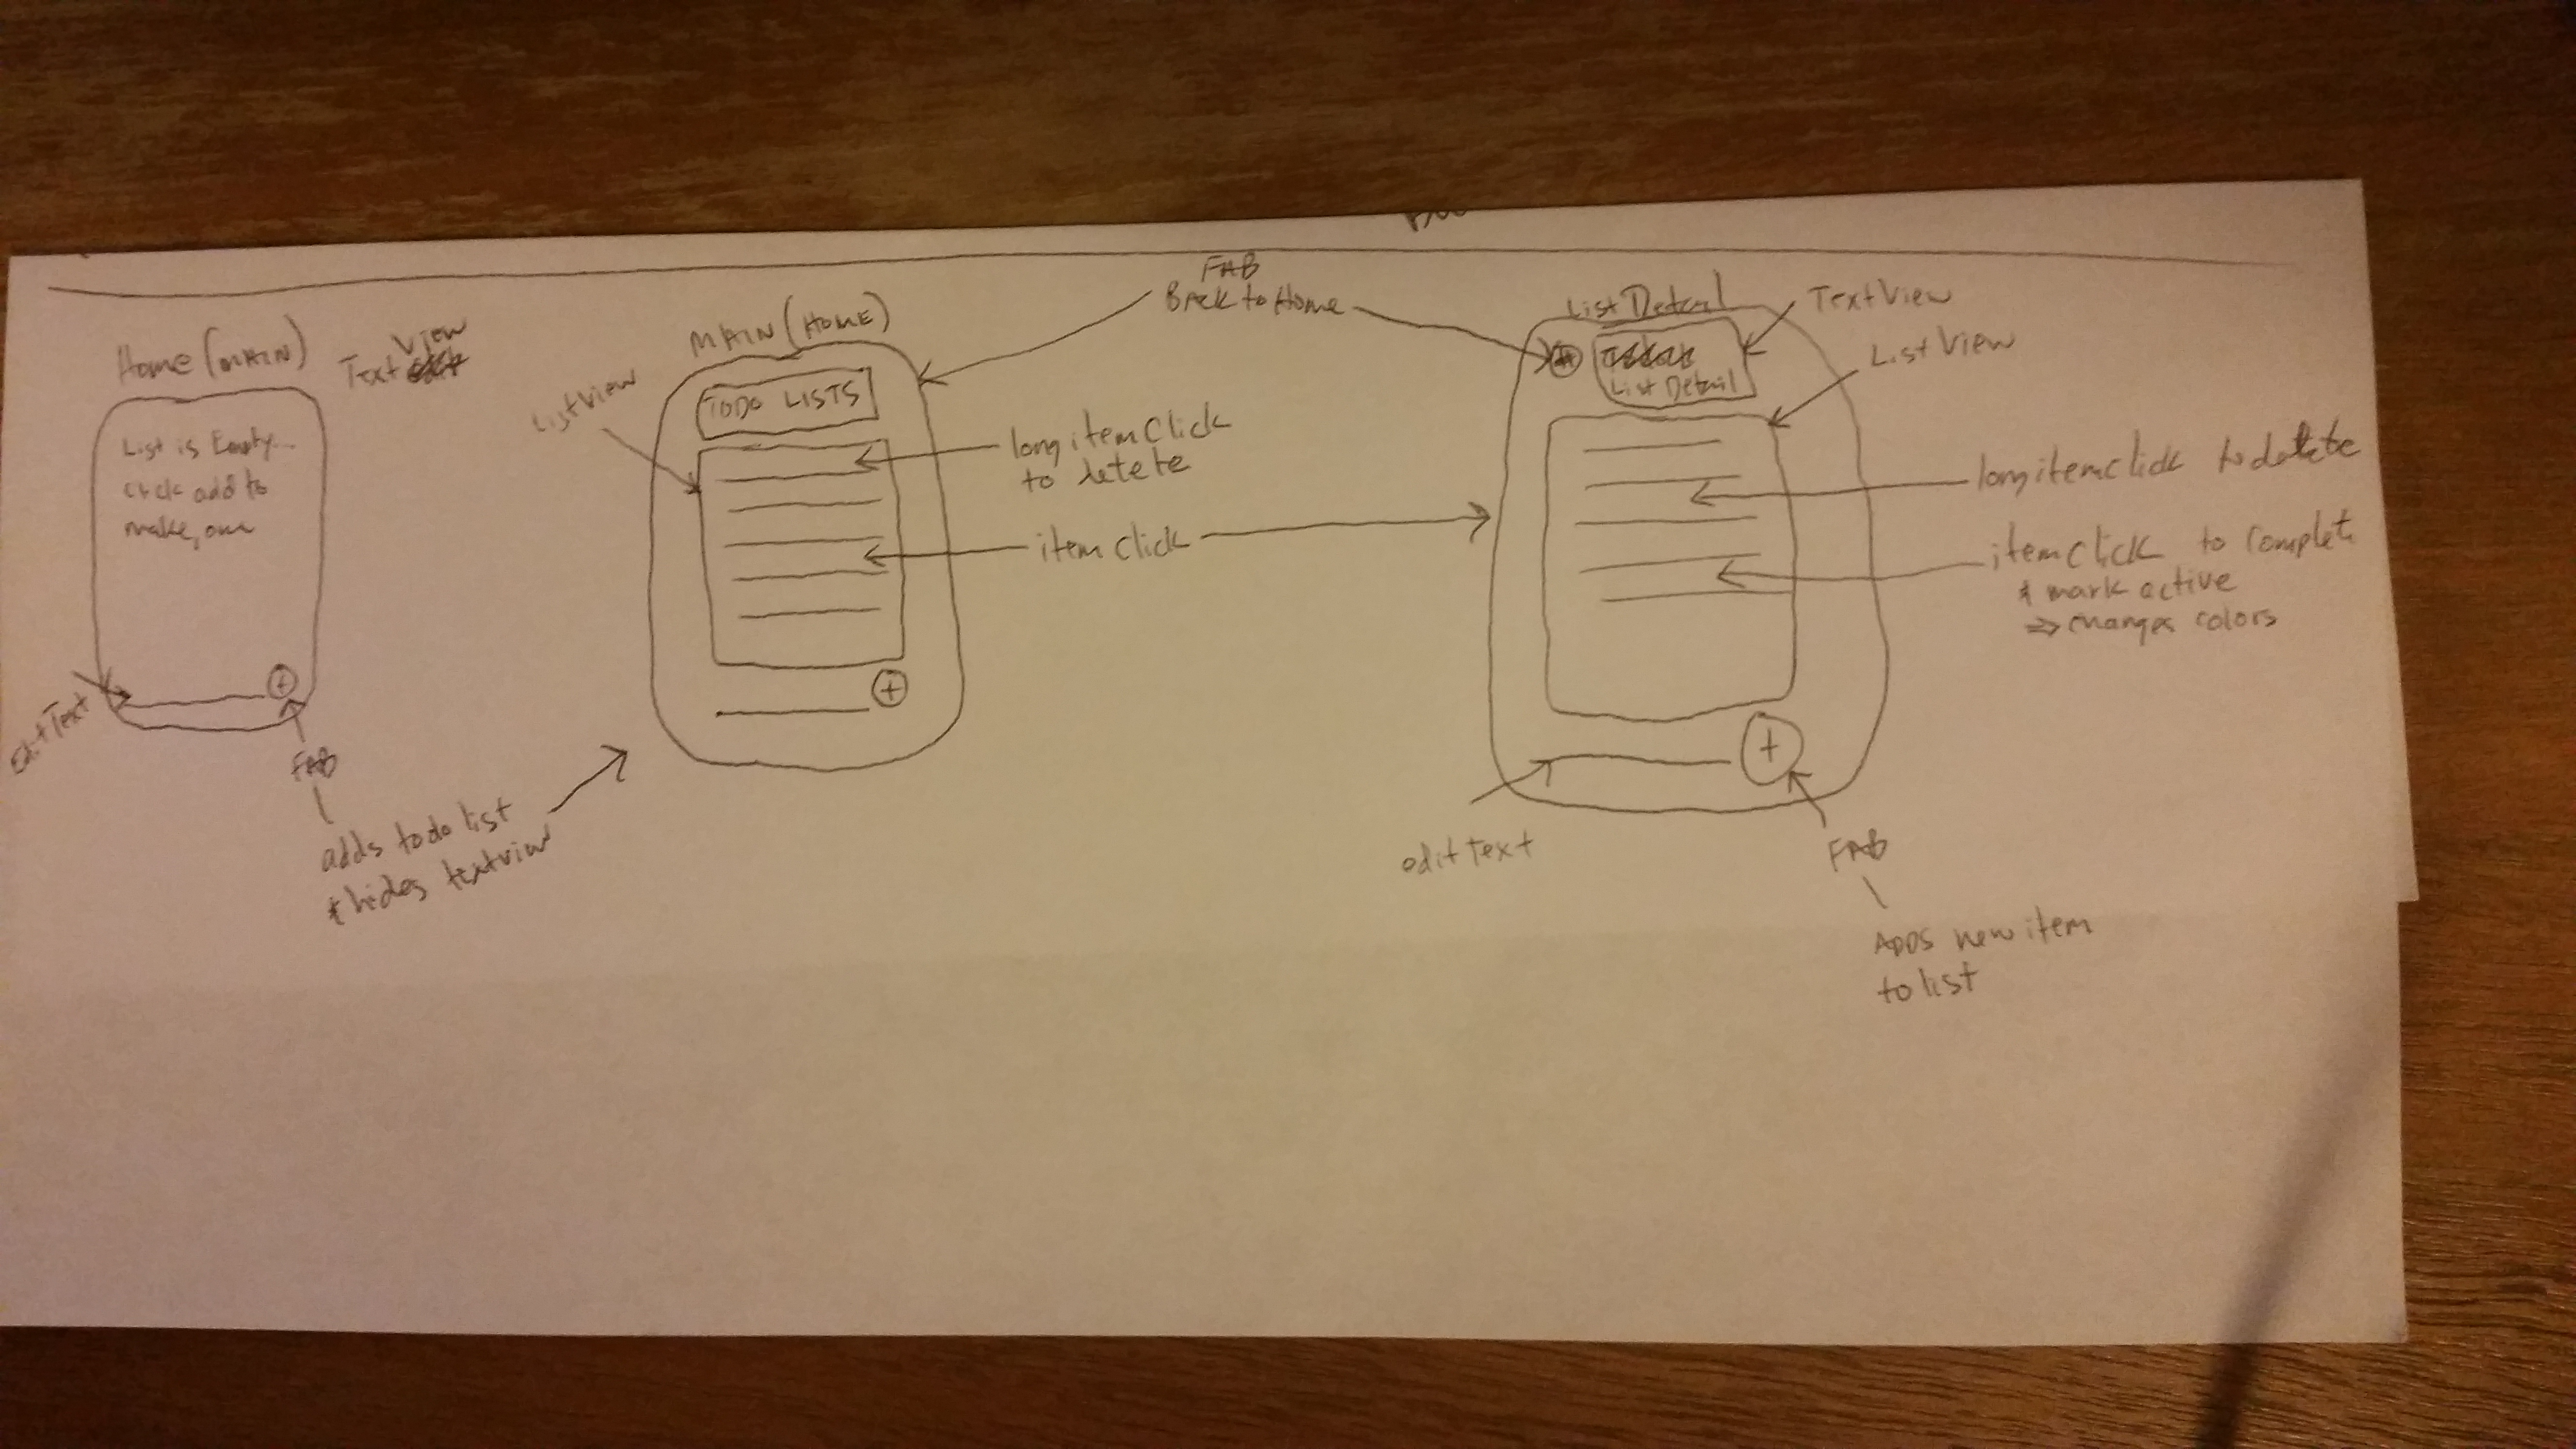 Home (MAIN)
TextView
List is Empty...
click add to
make, one
editText
FAB
adds todo list
+ hides textview
MAIN (HOME)
TODO LISTS
ListView
long itemClick
to delete
itemclick
FAB
Back to Home
List Detail
List Detail
TextView
ListView
longitemclick to delete
itemclick to complete
+ mark active
⇒ changes colors
editText
FAB
ADDS new item
to list